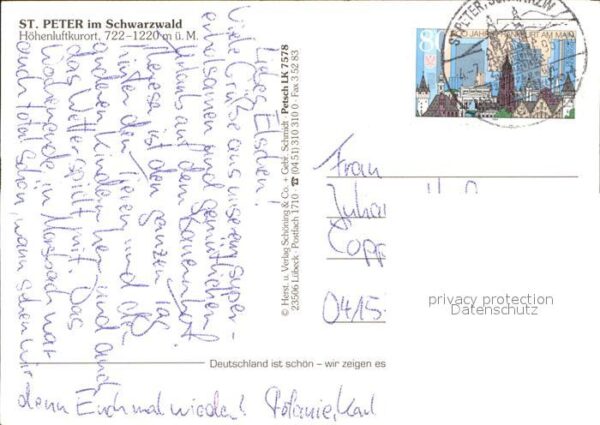 ST. PETER im Schwarzwald
Höhenluftkurort, 722–1220 m ü. M.
Liebes Elschen!
Viele Grüße aus unserem super-
erholsamen und gemütlichen
Urlaub auf dem Bauernhof.
Therese ist den ganzen Tag
hinter den Tieren und
anderen Kindern her und auch
das Wetter spielt mit. Das
Wochenende in Morsbach war
auch total schön, wann sehen wir
denn Euch mal wieder? Stefanie, Karl
© Herst. u. Verlag Schöning & Co. + Gebr. Schmidt · Petsch LK 7578
23506 Lübeck · Postfach 1710 · ☎ (04 51) 310 310 0 · Fax 3 52 83
80
JAHRE FRANKFURT AM MAIN
ST. PETER, SCHWARZW
Frau
Julia
Copp
0415
privacy protection
Datenschutz
Deutschland ist schön – wir zeigen es